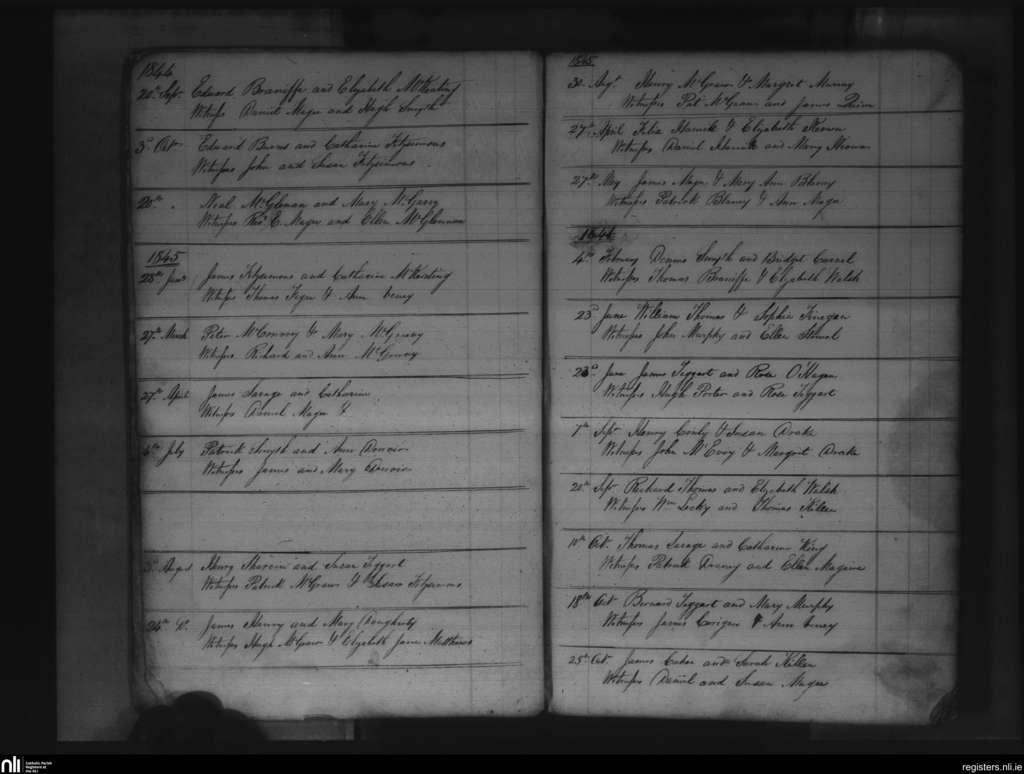 1844
20th Sept. Edward Braniffe and Elizabeth McKeating
Witnefses Daniel Magee and Hugh Smyth
3d Oct. Edward Burns and Catharine Fitzsimons
Witnefses John and Susan Fitzsimons
20th " Neal McGlenan and Mary McGarry
Witnefses Revd. E. Magee and Ellen McGlennan
1845
28th Jany. James Fitzsimons and Catharine McKeating
Witnefses Thomas and Ann
27th March Peter McConvey & Mary McGreevy
Witnefses Richard and Ann McGreevy
27th April James Savage and Catharine
Witnefses Daniel Magee &
4th July Patrick Smyth and Ann
Witnefses James and Mary
3d August Henry and Susan Teggart
Witnefses Patrick McGraw & Susan Fitzsimons
24th Do. James Henry and Mary Dougherty
Witnefses Hugh McGraw & Elizabeth Jane Matthews
1845
30 Augt. Henry McGraw & Margret Murray
Witnefses Pat McGraw and James Quinn
27th April & Elizabeth
Witnefses Daniel and Mary
27th May James Magee & Mary Ann Blaney
Witnefses Patrick Blaney & Ann Magee
1846
4th February Dennis Smyth and Bridget
Witnefses Thomas Braniffe & Elizabeth Walsh
23d June William Thomas & Sophia Finegan
Witnefses John Murphy and Ellen
23d June James Teggart and Rose O'Hagan
Witnefses Hugh Porter and Rose Teggart
7th Sept. Henry Conly & Susan Drake
Witnefses John McEvoy & Margret Drake
20th Sept. Richard Thomas and Elizabeth Walsh
Witnefses Wm Lecky and Thomas Killen
10th Oct. Thomas Savage and Catharine King
Witnefses Patrick and Ellen Maginn
18th Oct Bernard Teggart and Mary Murphy
Witnefses James Corigan & Ann
25th Oct. James and Sarah Killen
Witnefses Daniel and Susan Magee
nli
Catholic Parish
Registers at
the NLI
registers.nli.ie